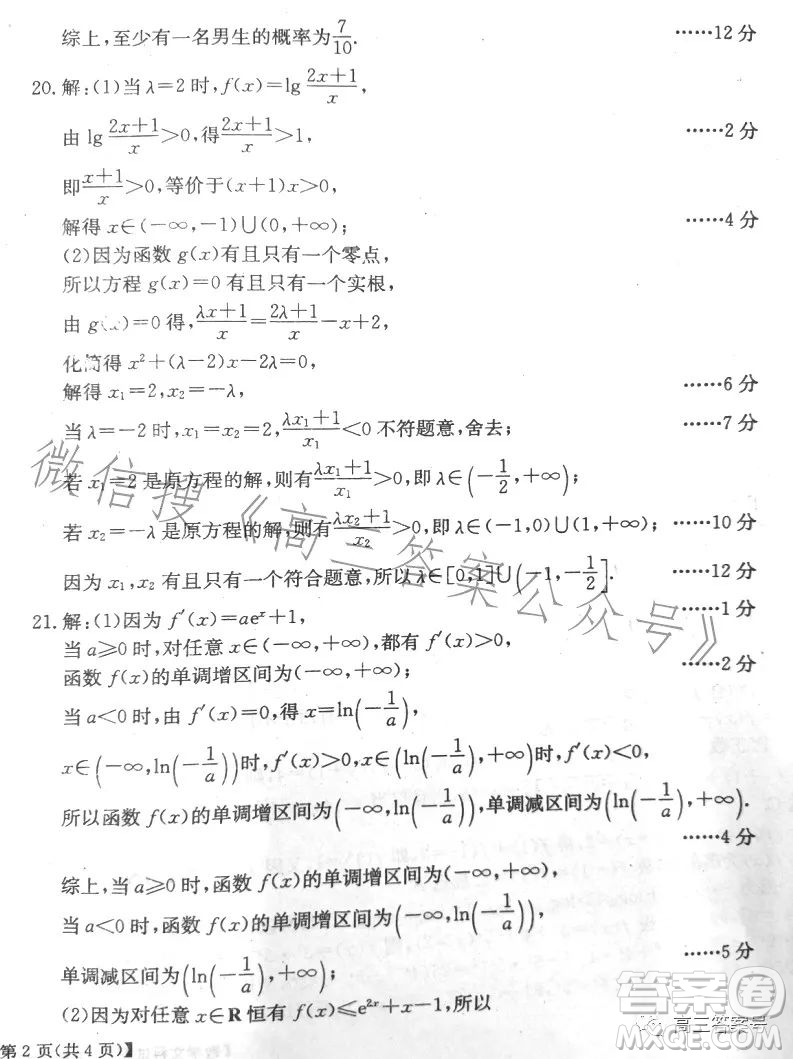 综上,至少有一名男生的概率为7/10. ……12分
20.解:(1)当λ=2时,f(x)=lg (2x+1)/x,
由 lg (2x+1)/x>0,得(2x+1)/x>1, ……2分
即(x+1)/x>0,等价于(x+1)x>0,
解得 x∈(-∞,-1)∪(0,+∞); ……4分
(2)因为函数 g(x)有且只有一个零点,
所以方程 g(x)=0有且只有一个实根,
由 g(x)=0得,(λx+1)/x=(2λ+1)/x-x+2,
化简得 x²+(λ-2)x-2λ=0,
解得 x₁=2,x₂=-λ, ……6分
当λ=-2时,x₁=x₂=2,(λx₁+1)/x₁<0 不符题意,舍去; ……7分
若 x₁=2 是原方程的解,则有(λx₁+1)/x₁>0,即λ∈(-1/2,+∞);
若 x₂=-λ 是原方程的解,则有(λx₂+1)/x₂>0,即λ∈(-1,0)∪(1,+∞); ……10分
因为 x₁,x₂ 有且只有一个符合题意,所以λ∈[0,1]∪(-1,-1/2]. ……12分
21.解:(1)因为 f′(x)=aeˣ+1, ……1分
当 a≥0时,对任意 x∈(-∞,+∞),都有 f′(x)>0,
函数 f(x)的单调增区间为(-∞,+∞); ……2分
当 a<0时,由 f′(x)=0,得 x=ln(-1/a),
x∈(-∞,ln(-1/a))时,f′(x)>0,x∈(ln(-1/a),+∞)时,f′(x)<0,
所以函数 f(x)的单调增区间为(-∞,ln(-1/a)),单调减区间为(ln(-1/a),+∞).
……4分
综上,当 a≥0时,函数 f(x)的单调增区间为(-∞,+∞);
当 a<0时,函数 f(x)的单调增区间为(-∞,ln(-1/a)),
单调减区间为(ln(-1/a),+∞); ……5分
(2)因为对任意 x∈R 恒有 f(x)≤e²ˣ+x-1,所以
第2页(共4页)】
微信搜《高三答案公众号》
答案圈
高三答案号
MXQE.COM